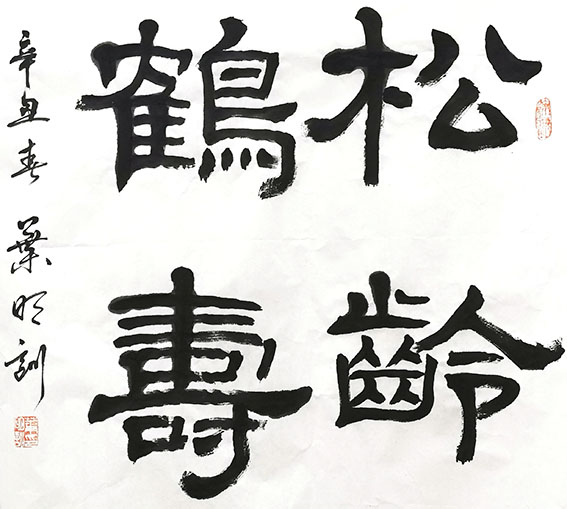 松齡
鶴壽
辛丑春 葉明訓